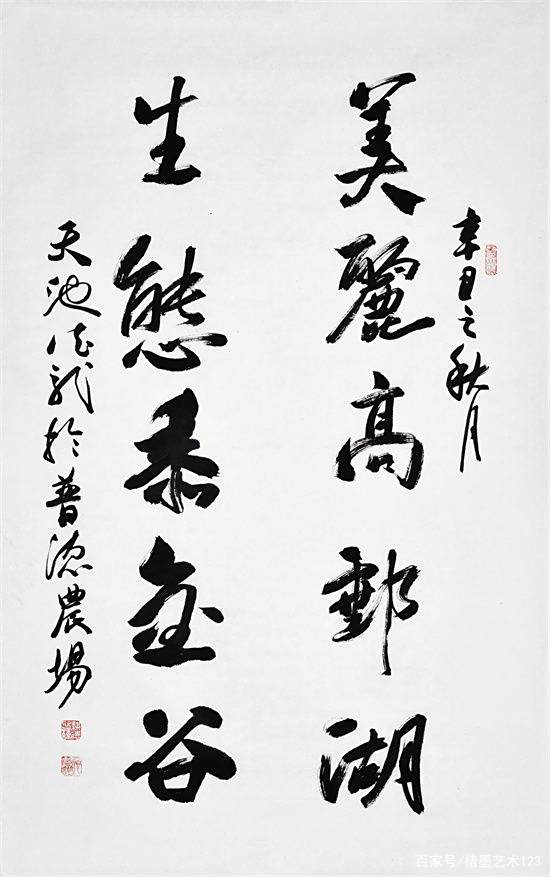 辛丑之秋月
美麗高郵湖
生態金谷
天池龍於普農場
百家号/楮墨艺术123